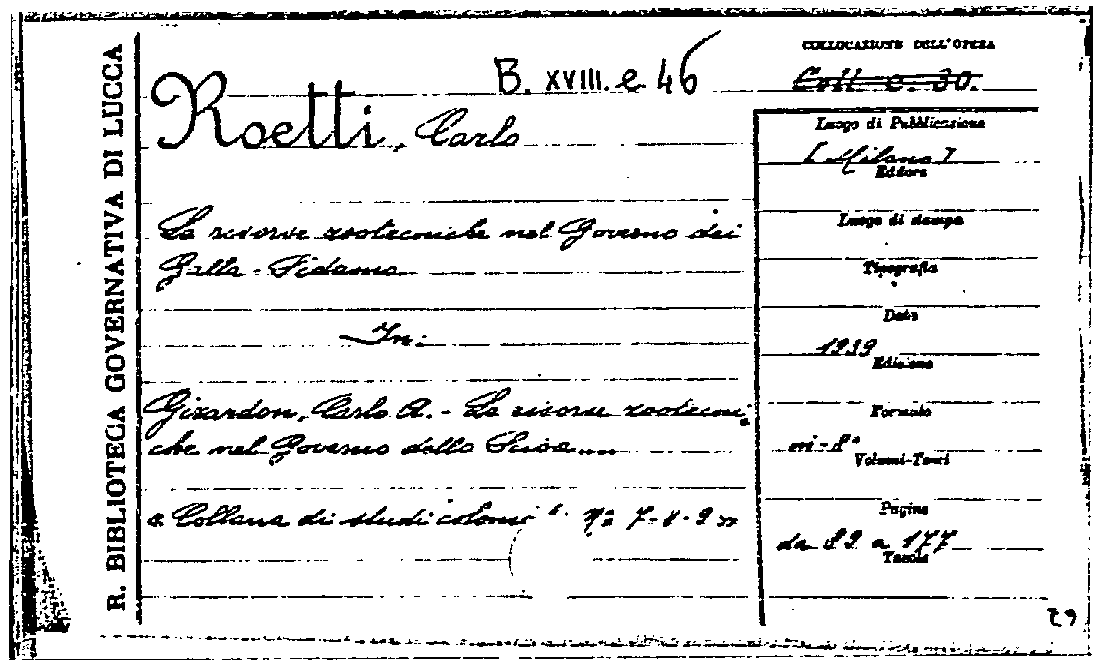 R. BIBLIOTECA GOVERNATIVA DI LUCCA
B. XVIII. e. 46
Roetti, Carlo
Le risorse zootecniche nel Governo dei
Galla-Sidamo
In:
Girardon, Carlo A. - Le risorse zootecni
che nel Governo dello Scioa....
"Collana di studi coloniali" nº 7-8-9
COLLOCAZIONE DELL'OPERA
Coll. c. 30.
Luogo di Pubblicazione
[Milano]
Editore
Luogo di stampa
Tipografia
Data
1939
Edizione
Formato
in-8°
Volumi-Tomi
Pagine
da 89 a 177
Tavole